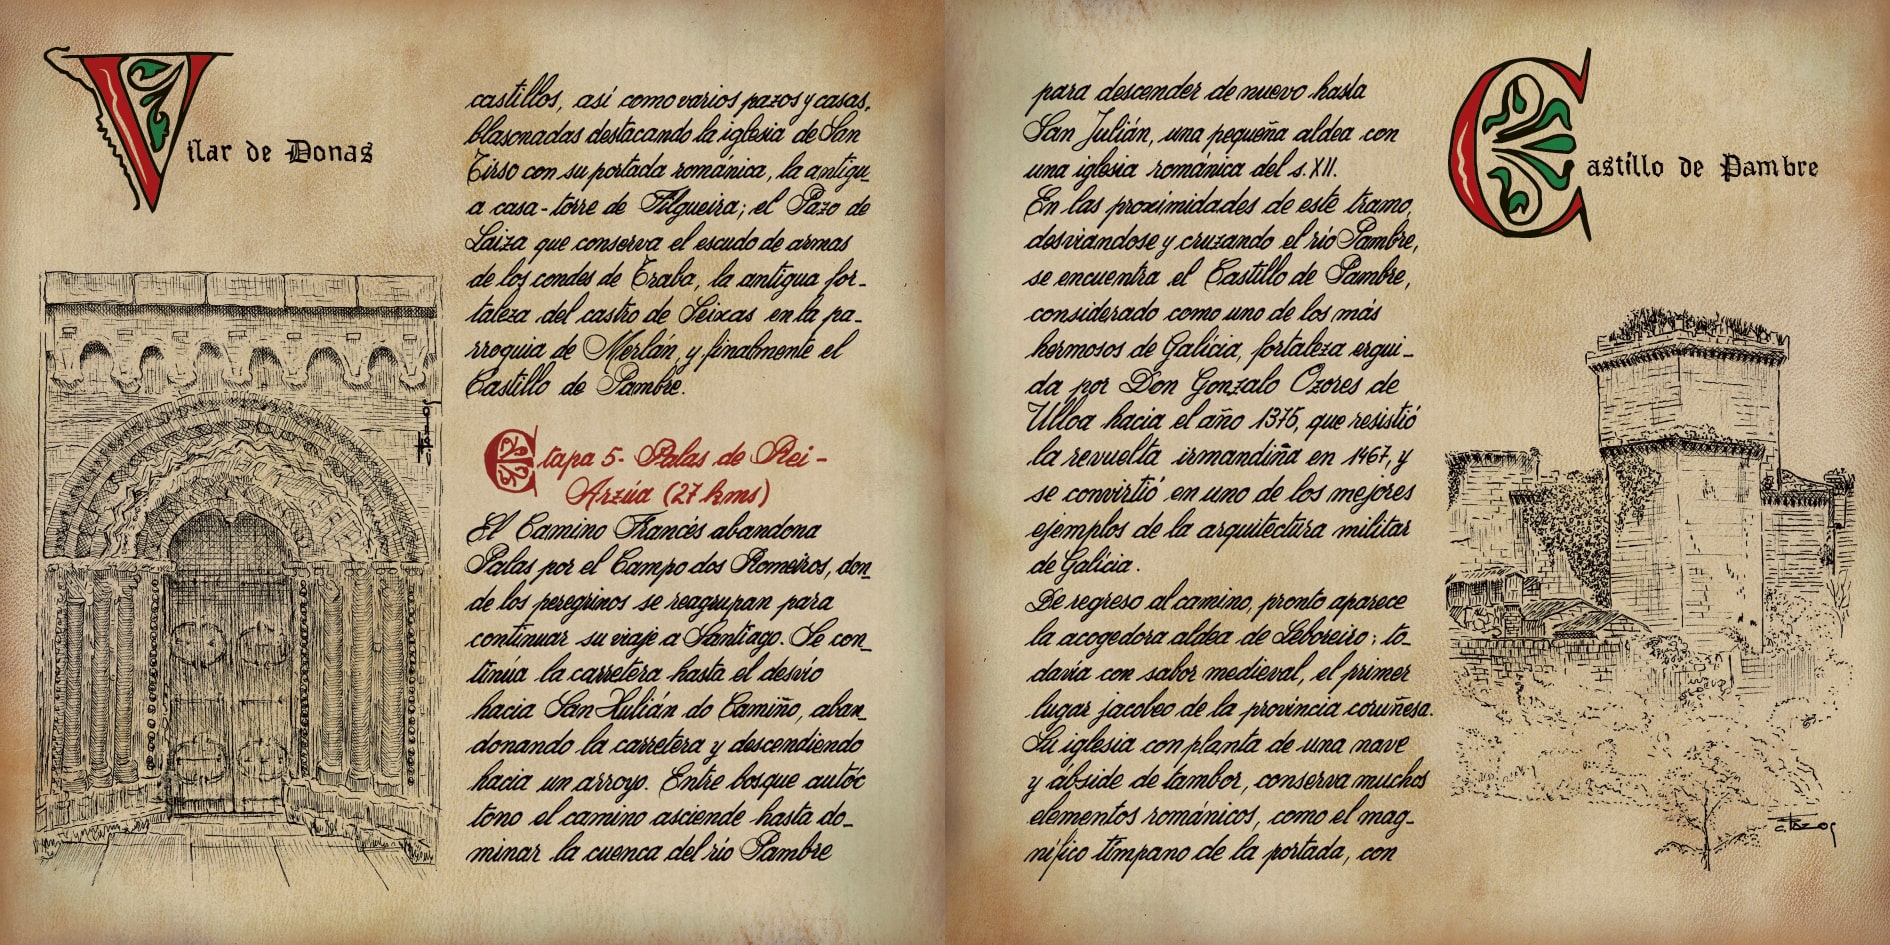 Vilar de Donas
castillos, así como varios pazos y casas,
blasonadas destacando la iglesia de San
Tirso con su portada románica, la antigu_
a casa-torre de Filgueira; el Pazo de
Laiza que conserva el escudo de armas
de los condes de Traba, la antigua for-
taleza del castro de Seixas en la pa-
rroquia de Merlán, y finalmente el
Castillo de Pambre.
Etapa 5- Palas de Rei-
Arzúa (27 kms)
El Camino Francés abandona
Palas por el Campo dos Romeiros, don_
de los peregrinos se reagrupan para
continuar su viaje a Santiago. Se con_
tinúa la carretera hasta el desvío
hacia San Xulián do Camiño, aban_
donando la carretera y descendiendo
hacia un arroyo. Entre bosque autóc
tono el camino asciende hasta do_
minar la cuenca del río Pambre
para descender de nuevo hasta
San Julián, una pequeña aldea con
una iglesia románica del s. XII.
En las proximidades de este tramo,
desviandose y cruzando el río Pambre,
se encuentra el Castillo de Pambre,
considerado como uno de los más
hermosos de Galicia, fortaleza ergui_
da por Don Gonzalo Ozores de
Ulloa hacia el año 1375, que resistió
la revuelta irmandiña en 1467, y
se convirtió en uno de los mejores
ejemplos de la arquitectura militar
de Galicia.
De regreso al camino, pronto aparece
la acogedora aldea de Leboreiro; to_
davía con sabor medieval, el primer
lugar jacobeo de la provincia coruñesa.
Su iglesia con planta de una nave
y ábside de tambor, conserva muchos
elementos románicos, como el mag_
nífico tímpano de la portada, con
Castillo de Pambre